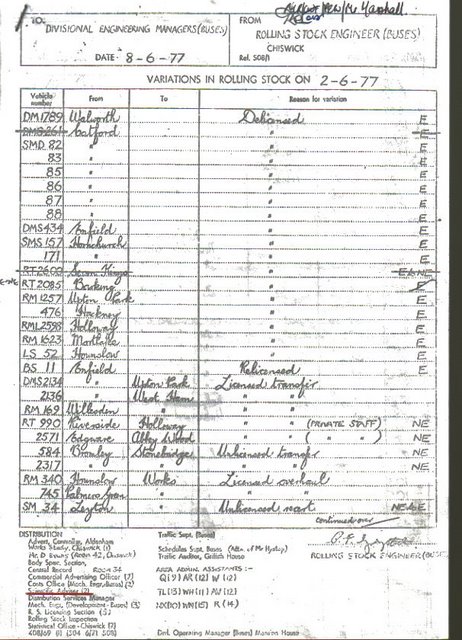 TO
DIVISIONAL ENGINEERING MANAGERS (BUSES)
DATE 8-6-77
FROM
ROLLING STOCK ENGINEER (BUSES)
CHISWICK
Ref. SOB/1
VARIATIONS IN ROLLING STOCK ON 2-6-77
Vehicle number From To Reason for variation
DM1789 Walworth Delicensed E
DMS261 Catford " E
SMD 82 " " E
83 " " E
85 " " E
86 " " E
87 " " E
88 " " E
DMS434 Enfield " E
SMS 157 Hornchurch " E
171 " " E
RT2600 Seven Kings " E&NE
RT 2085 Barking " E
RM 1257 Upton Park " E
476 Hackney " E
RML2598 Holloway " E
RM 1623 Mortlake " E
LS 52 Hounslow " E
BS 11 Enfield Relicensed E
DMS2134 Upton Park Licensed transfer
2136 West Ham " "
RM 169 Willesden " " "
RT 990 Riverside Holloway " " (PRIVATE STAFF) NE
2571 Edgware Abbey Wood " " ( " " ) NE
584 Bromley Stonebridge Unlicensed transfer NE
2317 " " " " NE
RM 340 Hounslow Works Licensed overhaul
745 Palmers Green " " "
SM 34 Leyton " Unlicensed recert NE&E
continued over
ROLLING STOCK ENGINEER (BUSES)
DISTRIBUTION
Advert. Controller, Aldenham
Works Study, Chiswick (1)
Mr D Evans (Room 42, Chiswick)
Body Supr. Section
Central Record ROOM 34
Commercial Advertising Officer (7)
Costs Office (Mech. Engr. Buses) (2)
Scientific Adviser (2)
Distribution Services Manager
Mech. Engr. (Development - Buses) (3)
R. S. Licensing Section (5)
Rolling Stock Inspection
Statistical Office - Chiswick (7)
Traffic Supt. (Buses)
Schedules Supt. Buses (Attn. of Mr Hyslop)
Traffic Auditor, Griffith House
AREA ADMN. ASSISTANTS -
Q(9) AR(12) W (12)
TL(13) WH(11) AV (12)
Dvnl. Operating Manager (Buses) Manor House